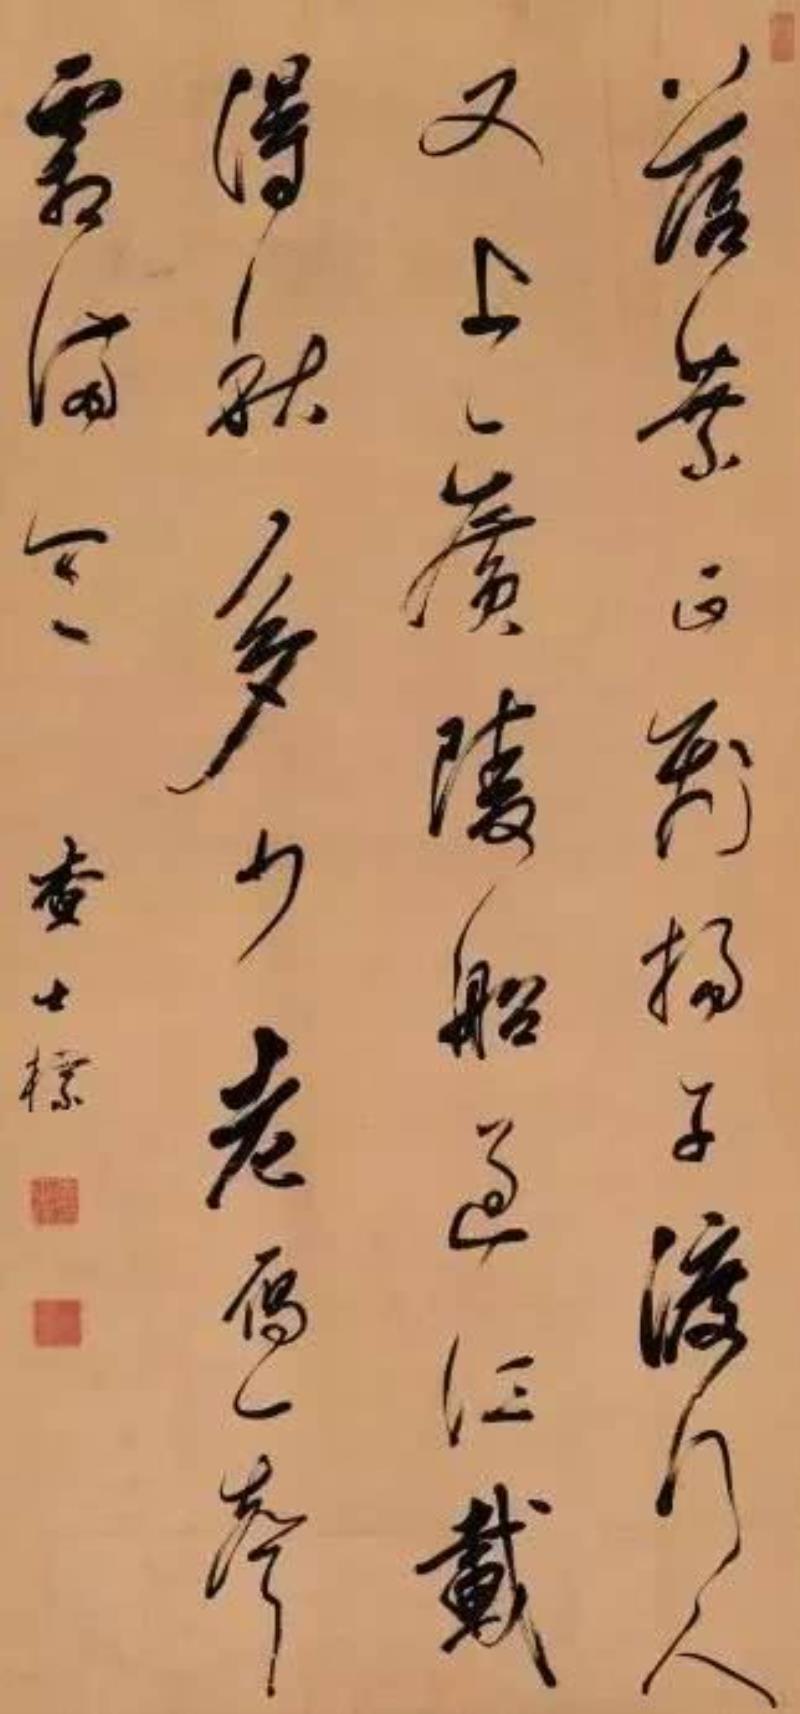 落葉正飛揚子渡行人
又上廣陵船過江載
得秋多少老雁一聲
霜滿天 查士標